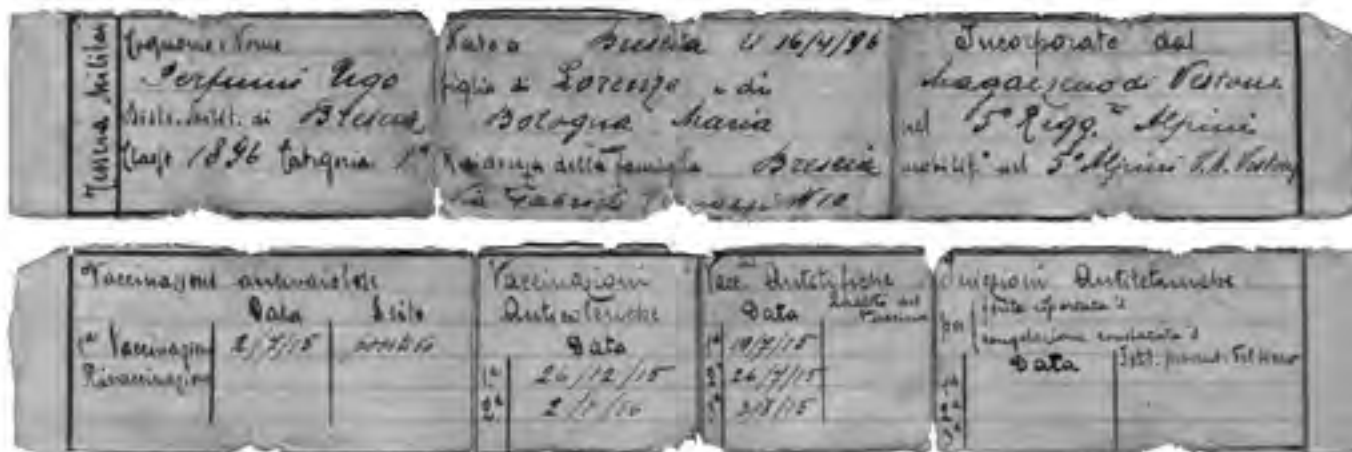 Tessera Militar
Cognome e Nome
Perfumi Ugo
Distr. Milit. di Brescia
Classe 1896 Categoria 1ª
Nato a Brescia il 16/4/96
figlio di Lorenzo e di
Bologna Maria
Residenza della famiglia Brescia
Via Gabriele Nº 10
Incorporato dal
Magazzino di Vestone
nel 5º Regg.to Alpini
mobilit.º nel 5º Alpini
Vaccinazione antivaiolose
Data Esito
1ª Vaccinazione 2/7/15
Rivaccinazione
Vaccinazioni
Anticoleriche
Data
1ª 26/12/15
2ª 2/1/16
Vacc. Antitifiche
Data
1ª 19/7/15
2ª 26/7/15
3ª 3/8/15
Iniezioni Antitetaniche
per ferita riportata il
congelazione constatata il
Data
1ª
2ª
3ª